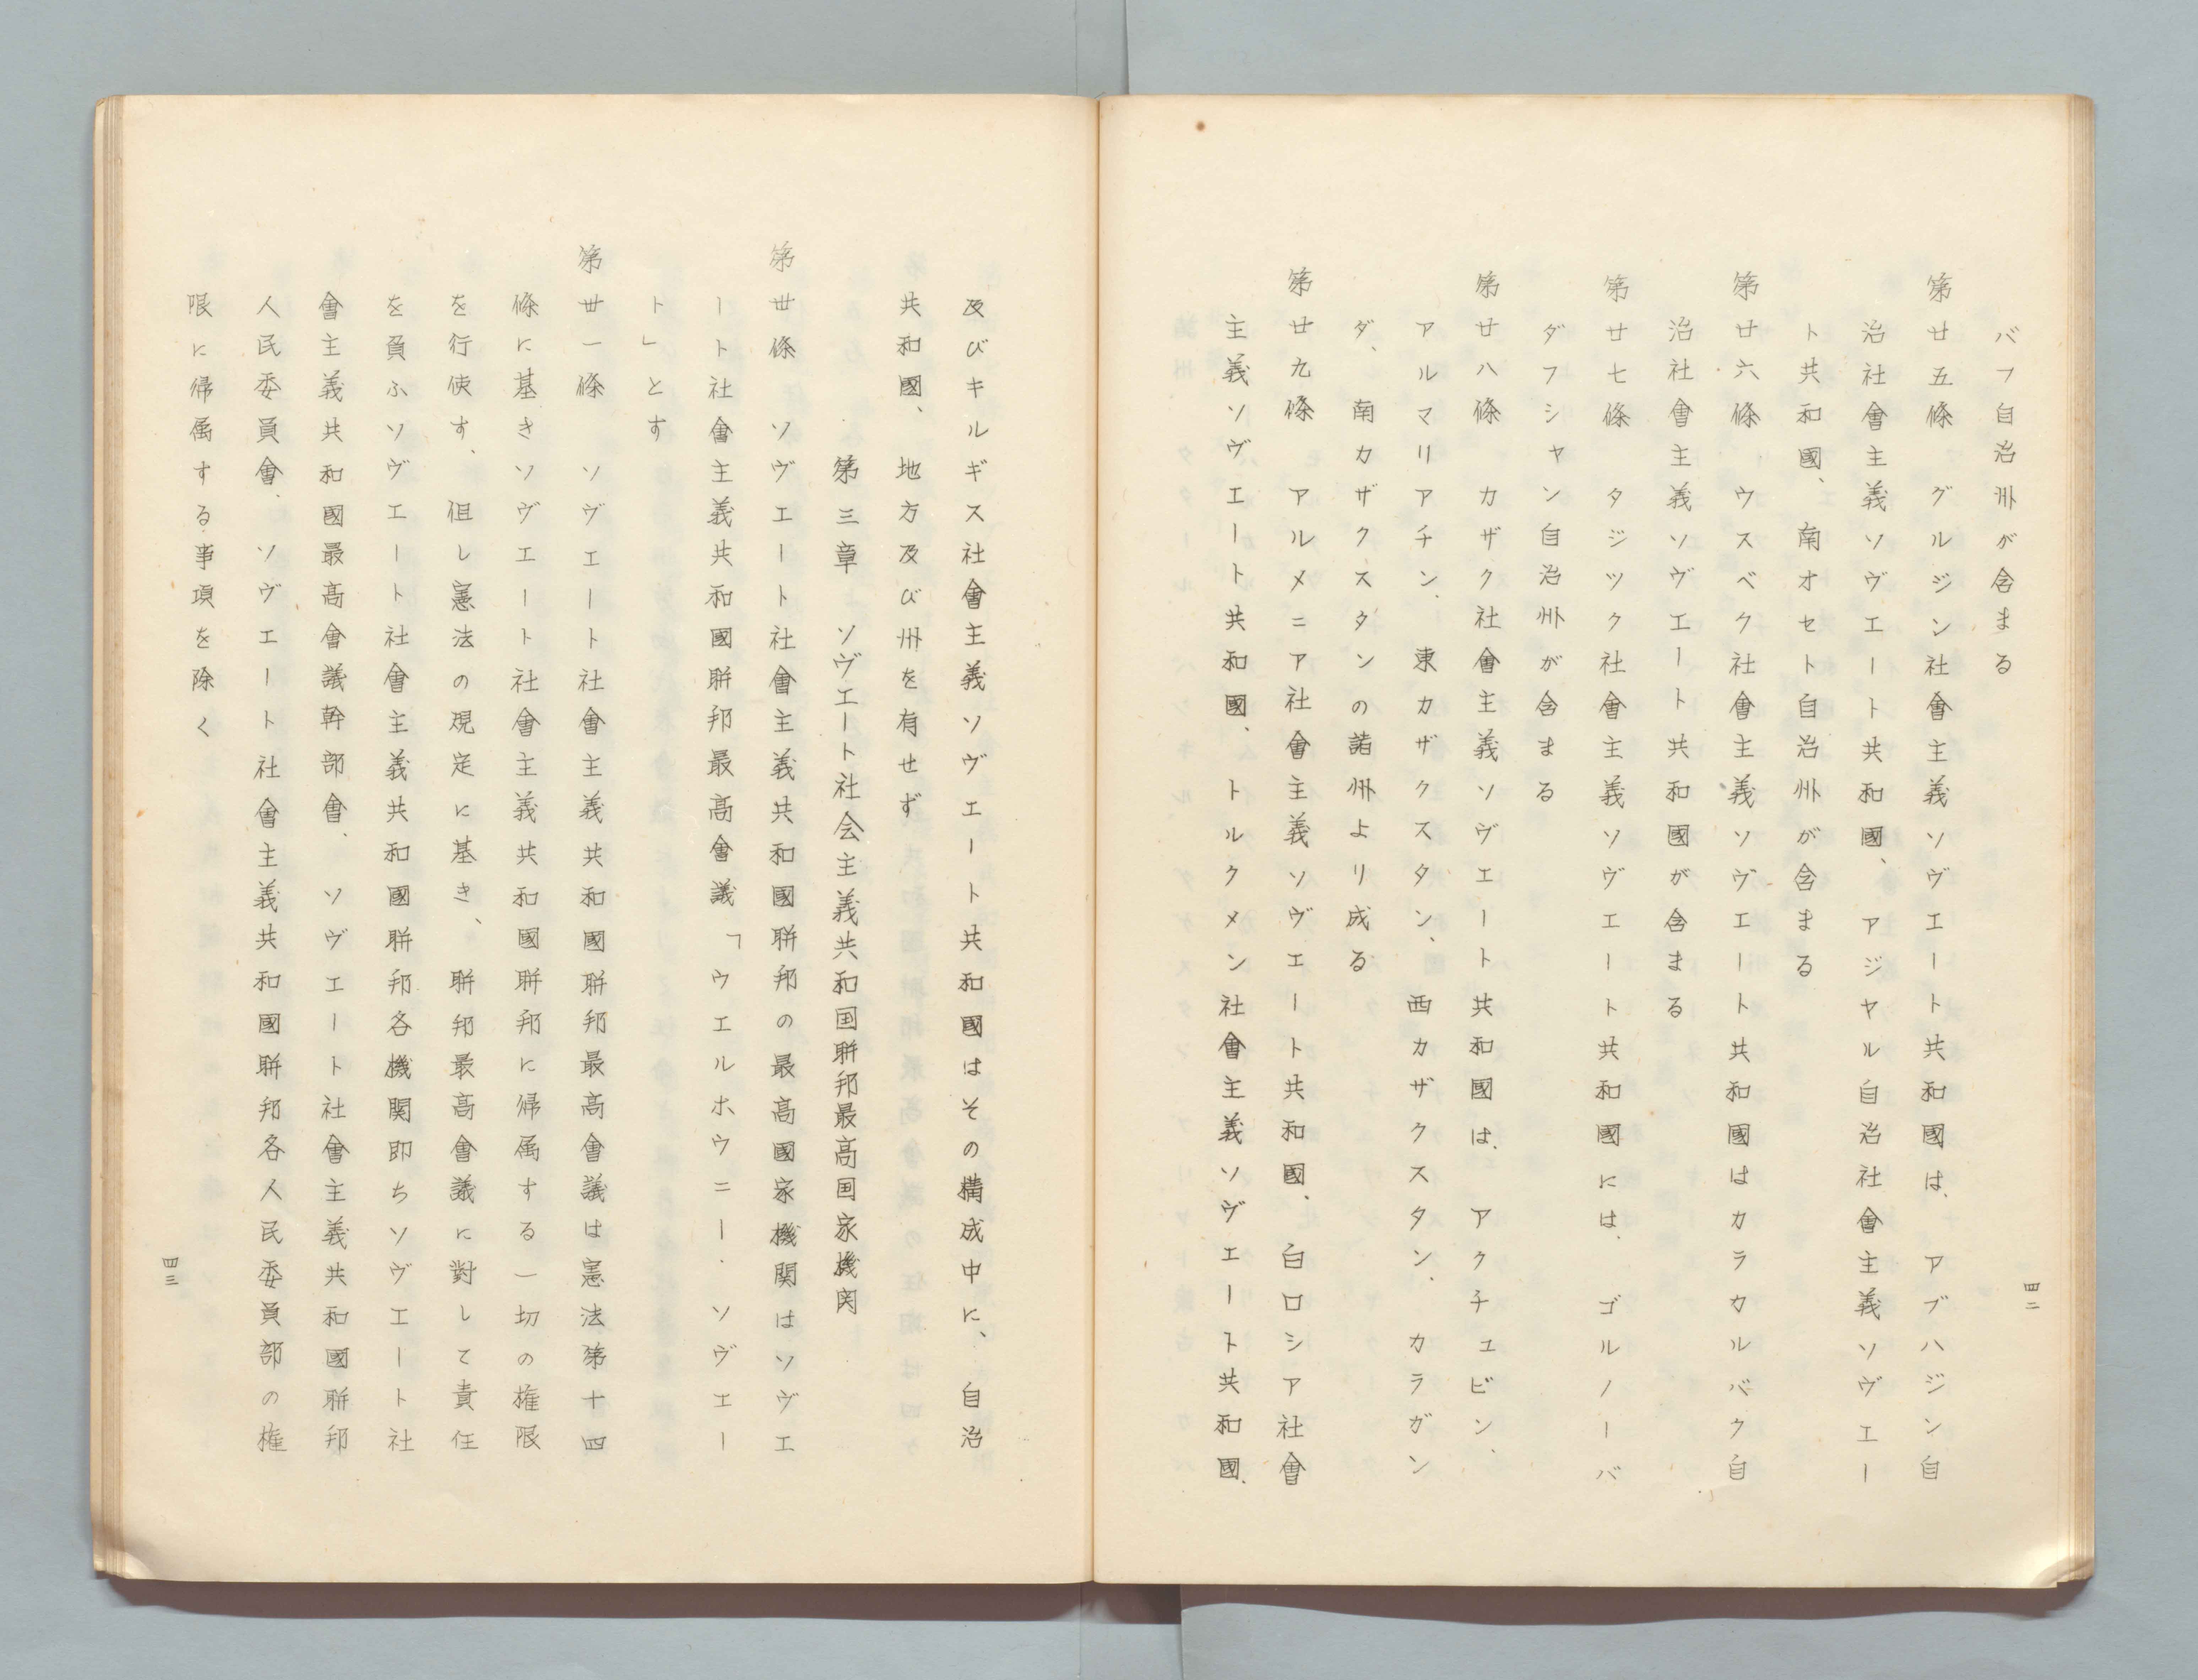 バフ自治州が含まる
第廿五條　グルジン社會主義ソヴエート共和國は、アブハジン自
治社會主義ソヴエート共和國、アジヤル自治社會主義ソヴエー
ト共和國、南オセト自治州が含まる
第廿六條　ウスベク社會主義ソヴエート共和國はカラカルバク自
治社會主義ソヴエート共和國が含まる
第廿七條　タジツク社會主義ソヴエート共和國には、ゴルノーバ
ダフシヤン自治州が含まる
第廿八條　カザク社會主義ソヴエート共和國は、アクチユビン、
アルマリアチン、東カザクスタン、西カザクスタン、カラガン
ダ、南カザクスタンの諸州より成る
第廿九條　アルメニア社會主義ソヴエート共和國、白ロシア社會
主義ソヴエート共和國、トルクメン社會主義ソヴエート共和國、
四二
及びキルギス社會主義ソヴエート共和國はその構成中に、自治
共和國、地方及び州を有せず
第三章　ソヴエート社会主義共和国聯邦最高国家機関
第丗條　ソヴエート社會主義共和國聯邦の最高國家機関はソヴエ
ート社會主義共和國聯邦最高會議「ウエルホウニー・ソヴエー
ト」とす
第丗一條　ソヴエート社會主義共和國聯邦最高會議は憲法第十四
條に基きソヴエート社會主義共和國聯邦に帰属する一切の権限
を行使す、但し憲法の規定に基き、聯邦最高會議に對して責任
を負ふソヴエート社會主義共和國聯邦各機関即ちソヴエート社
會主義共和國最高會議幹部會、ソヴエート社會主義共和國聯邦
人民委員會、ソヴエート社會主義共和國聯邦各人民委員部の権
限に帰属する事項を除く
四三